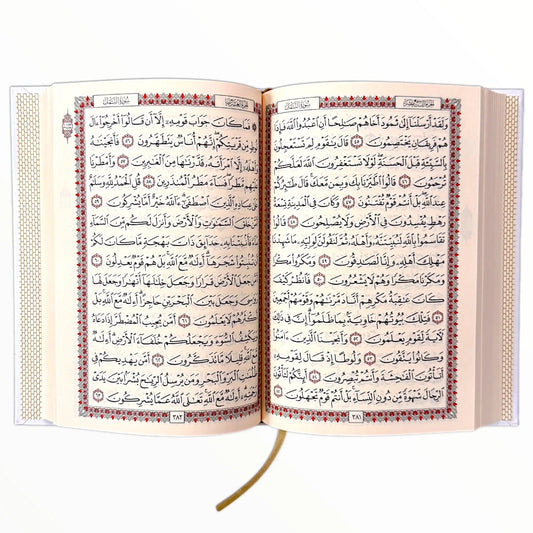 الجزء التاسع عشر
سُورَةُ النَّمْلِ
وَلَقَدْ أَرْسَلْنَآ إِلَىٰ ثَمُودَ أَخَاهُمْ صَٰلِحًا أَنِ ٱعْبُدُوا۟ ٱللَّهَ فَإِذَا
هُمْ فَرِيقَانِ يَخْتَصِمُونَ ٤٥ قَالَ يَٰقَوْمِ لِمَ تَسْتَعْجِلُونَ
بِٱلسَّيِّئَةِ قَبْلَ ٱلْحَسَنَةِ لَوْلَا تَسْتَغْفِرُونَ ٱللَّهَ لَعَلَّكُمْ
تُرْحَمُونَ ٤٦ قَالُوا۟ ٱطَّيَّرْنَا بِكَ وَبِمَن مَّعَكَ قَالَ طَٰٓئِرُكُمْ
عِندَ ٱللَّهِ بَلْ أَنتُمْ قَوْمٌ تُفْتَنُونَ ٤٧ وَكَانَ فِى ٱلْمَدِينَةِ تِسْعَةُ
رَهْطٍ يُفْسِدُونَ فِى ٱلْأَرْضِ وَلَا يُصْلِحُونَ ٤٨ قَالُوا۟
تَقَاسَمُوا۟ بِٱللَّهِ لَنُبَيِّتَنَّهُۥ وَأَهْلَهُۥ ثُمَّ لَنَقُولَنَّ لِوَلِيِّهِۦ مَا شَهِدْنَا
مَهْلِكَ أَهْلِهِۦ وَإِنَّا لَصَٰدِقُونَ ٤٩ وَمَكَرُوا۟ مَكْرًا
وَمَكَرْنَا مَكْرًا وَهُمْ لَا يَشْعُرُونَ ٥٠ فَٱنظُرْ كَيْفَ
كَانَ عَٰقِبَةُ مَكْرِهِمْ أَنَّا دَمَّرْنَٰهُمْ وَقَوْمَهُمْ أَجْمَعِينَ
٥١ فَتِلْكَ بُيُوتُهُمْ خَاوِيَةًۢ بِمَا ظَلَمُوٓا۟ إِنَّ فِى ذَٰلِكَ
لَءَايَةً لِّقَوْمٍ يَعْلَمُونَ ٥٢ وَأَنجَيْنَا ٱلَّذِينَ ءَامَنُوا۟
وَكَانُوا۟ يَتَّقُونَ ٥٣ وَلُوطًا إِذْ قَالَ لِقَوْمِهِۦٓ
أَتَأْتُونَ ٱلْفَٰحِشَةَ وَأَنتُمْ تُبْصِرُونَ ٥٤ أَئِنَّكُمْ لَتَأْتُونَ
ٱلرِّجَالَ شَهْوَةً مِّن دُونِ ٱلنِّسَآءِ بَلْ أَنتُمْ قَوْمٌ تَجْهَلُونَ ٥٥
٣٨١
الجزء العشرون
سُورَةُ النَّمْلِ
فَمَا كَانَ جَوَابَ قَوْمِهِۦٓ إِلَّآ أَن قَالُوٓا۟ أَخْرِجُوٓا۟ ءَالَ
لُوطٍ مِّن قَرْيَتِكُمْ إِنَّهُمْ أُنَاسٌ يَتَطَهَّرُونَ ٥٦ فَأَنجَيْنَٰهُ
وَأَهْلَهُۥٓ إِلَّا ٱمْرَأَتَهُۥ قَدَّرْنَٰهَا مِنَ ٱلْغَٰبِرِينَ ٥٧ وَأَمْطَرْنَا
عَلَيْهِم مَّطَرًا فَسَآءَ مَطَرُ ٱلْمُنذَرِينَ ٥٨ قُلِ ٱلْحَمْدُ لِلَّهِ وَسَلَٰمٌ
عَلَىٰ عِبَادِهِ ٱلَّذِينَ ٱصْطَفَىٰٓ ءَآللَّهُ خَيْرٌ أَمَّا يُشْرِكُونَ ٥٩
أَمَّنْ خَلَقَ ٱلسَّمَٰوَٰتِ وَٱلْأَرْضَ وَأَنزَلَ لَكُم مِّنَ ٱلسَّمَآءِ
مَآءً فَأَنۢبَتْنَا بِهِۦ حَدَآئِقَ ذَاتَ بَهْجَةٍ مَّا كَانَ لَكُمْ
أَن تُنۢبِتُوا۟ شَجَرَهَآ أَءِلَٰهٌ مَّعَ ٱللَّهِ بَلْ هُمْ قَوْمٌ يَعْدِلُونَ ٦٠
أَمَّن جَعَلَ ٱلْأَرْضَ قَرَارًا وَجَعَلَ خِلَٰلَهَآ أَنْهَٰرًا وَجَعَلَ لَهَا
رَوَٰسِىَ وَجَعَلَ بَيْنَ ٱلْبَحْرَيْنِ حَاجِزًا أَءِلَٰهٌ مَّعَ ٱللَّهِ بَلْ
أَكْثَرُهُمْ لَا يَعْلَمُونَ ٦١ أَمَّن يُجِيبُ ٱلْمُضْطَرَّ إِذَا دَعَاهُ
وَيَكْشِفُ ٱلسُّوٓءَ وَيَجْعَلُكُمْ خُلَفَآءَ ٱلْأَرْضِ أَءِلَٰهٌ
مَّعَ ٱللَّهِ قَلِيلًا مَّا تَذَكَّرُونَ ٦٢ أَمَّن يَهْدِيكُمْ فِى
ظُلُمَٰتِ ٱلْبَرِّ وَٱلْبَحْرِ وَمَن يُرْسِلُ ٱلرِّيَٰحَ بُشْرًۢا بَيْنَ يَدَىْ
رَحْمَتِهِۦٓ أَءِلَٰهٌ مَّعَ ٱللَّهِ تَعَٰلَى ٱللَّهُ عَمَّا يُشْرِكُونَ ٦٣
٣٨٢